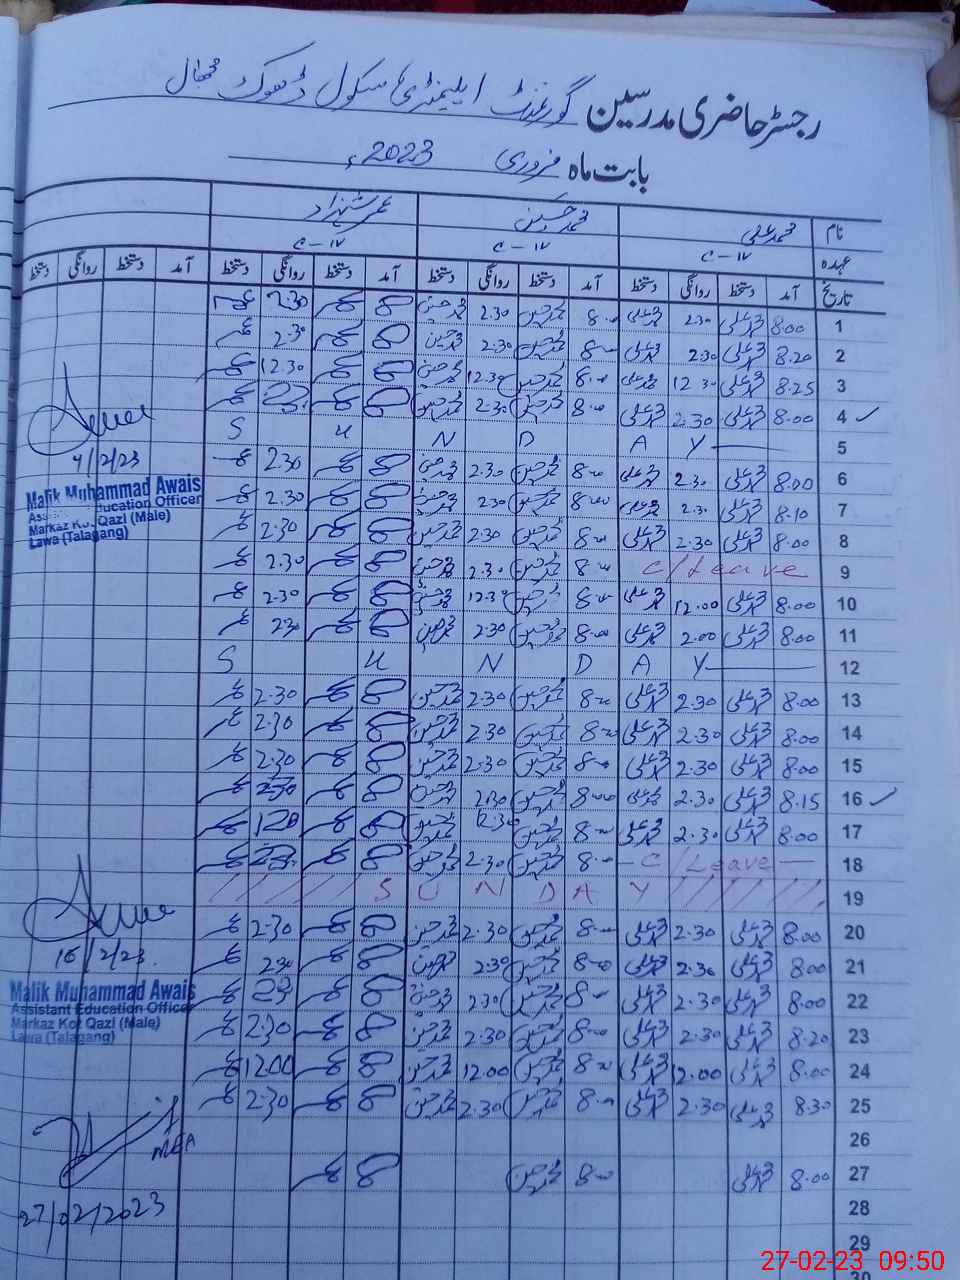 رجسٹر حاضری مدرسین گورنمنٹ ایلیمنٹری سکول ڈھوک
بابت ماہ فروری 2023ء
نام محمد علی محمد حسین عمر شہزاد
عہدہ
تاریخ آمد دستخط روانگی دستخط آمد دستخط روانگی دستخط آمد دستخط روانگی دستخط آمد دستخط روانگی دستخط
1 8.00 محمد علی 2.30 محمد علی 8.00 محمد حسین 2.30 محمد حسین 8 2.30
2 8.20 محمد علی 2.30 محمد علی 8.00 محمد حسین 2.30 محمد حسین 8 2.30
3 8.25 محمد علی 12.30 محمد علی 8.00 محمد حسین 12.30 محمد حسین 8 12.30
4 8.00 محمد علی 2.30 محمد علی 8.00 محمد حسین 2.30 محمد حسین 8
5 S U N D A Y
6 8.00 محمد علی 2.30 محمد علی 8.00 محمد حسین 2.30 محمد حسین 8 2.30
7 8.10 محمد علی 2.30 محمد علی 8.00 محمد حسین 2.30 محمد حسین 8 2.30
8 8.00 محمد علی 2.30 محمد علی 8.00 محمد حسین 2.30 محمد حسین 8 2.30
9 C/Leave 8.00 محمد حسین 2.30 محمد حسین 8 2.30
10 8.00 محمد علی 12.00 محمد علی 8.00 محمد حسین 12.30 محمد حسین 8 2.30
11 8.00 محمد علی 2.00 محمد علی 8.00 محمد حسین 2.30 محمد حسین 8 230
12 S U N D A Y
13 8.00 محمد علی 2.30 محمد علی 8.00 محمد حسین 2.30 محمد حسین 8 2.30
14 8.00 محمد علی 2.30 محمد علی 8.00 محمد حسین 2.30 محمد حسین 8 2.30
15 8.00 محمد علی 2.30 محمد علی 8.00 محمد حسین 2.30 محمد حسین 8 2.30
16 8.15 محمد علی 2.30 محمد علی 8.00 محمد حسین 2.30 محمد حسین 8
17 8.00 محمد علی 2.30 محمد علی 8.00 محمد حسین 12.30 محمد حسین 8
18 C/Leave 8.00 محمد حسین 2.30 محمد حسین 8
19 S U N D A Y
20 8.00 محمد علی 2.30 محمد علی 8.00 محمد حسین 2.30 محمد حسین 8 2.30
21 8.00 محمد علی 2.30 محمد علی 8.00 محمد حسین 2.30 محمد حسین 8 2.30
22 8.00 محمد علی 2.30 محمد علی 8.00 محمد حسین 2.30 محمد حسین 8
23 8.20 محمد علی 2.30 محمد علی 8.00 محمد حسین 2.30 محمد حسین 8 2.30
24 8.00 محمد علی 12.00 محمد علی 8.00 محمد حسین 12.00 محمد حسین 8 12.00
25 8.30 محمد علی 2.30 محمد علی 8.00 محمد حسین 2.30 محمد حسین 8 2.30
26
27 8.00 محمد علی 8.00 محمد حسین 8
28
29
30
4/2/23
Malik Muhammad Awais
Assistant Education Officer
Markaz Kot Qazi (Male)
Lawa (Talagang)
16/2/23.
Malik Muhammad Awais
Assistant Education Officer
Markaz Kot Qazi (Male)
Lawa (Talagang)
MEA
27/02/2023
27-02-23 09:50